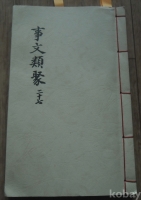 事文類聚
kobay